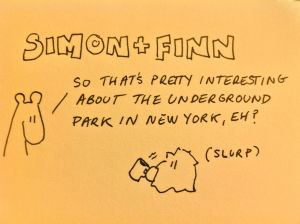 SIMON + FINN
SO THAT'S PRETTY INTERESTING
ABOUT THE UNDERGROUND
PARK IN NEW YORK, EH?
(SLURP)